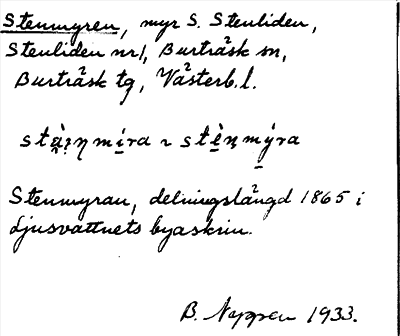 Stenmyren, myr S. Stenliden,
Stenliden nr 1, Burträsk sn,
Burträsk tg, Västerb. l.
stä̀i̯ņ mi̱ra ~ stè̱ņ mý̱ra
Stenmyran, delningslängd 1865 i
Ljusvattnets byaskrin.
B. Nyppen 1933.